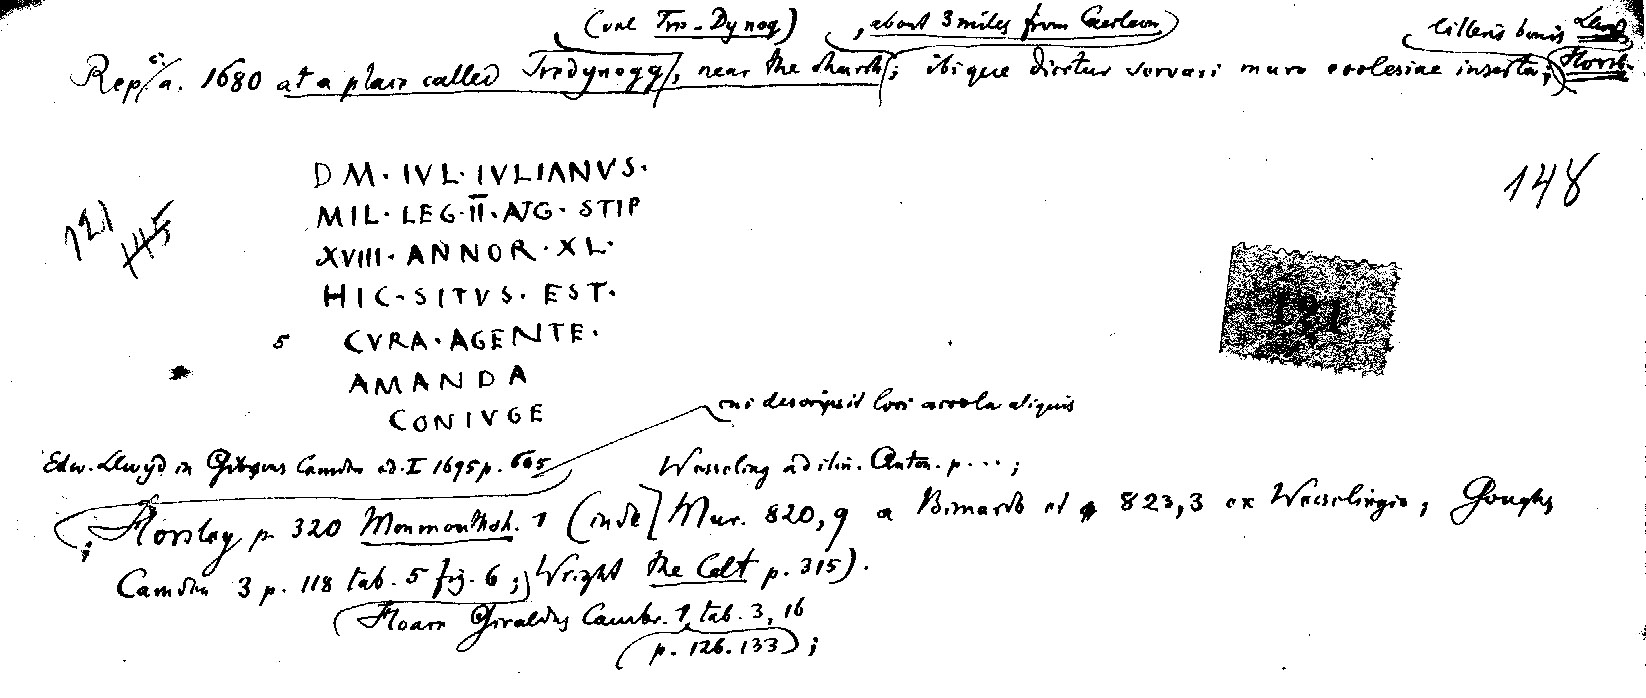 (vel Tre-Dynog) , about 3 miles from Caerleon) litteris bonis
Rep. a. 1680 at a place called Tredynogg, near the church; ibique dicitur servari muro ecclesiae inserta; Horsl.
D M · IVL · IVLIANVS ·
MIL · LEG · II · AVG · STIP
XVIII · ANNOR · XL ·
HIC · SITVS · EST ·
5 CVRA · AGENTE ·
AMANDA
CONIVGE
148
121
145
121
cui descripsit loci accola aliquis
Edw. Llwyd in Gibsons Camden ed. I 1695 p. 605
Wesseling ad itin. Anton. p. ... ;
; Horsley p. 320 Monmouthsh. 1 (inde Mur. 820,9 a Bimardo et 823,3 ex Wesselingio, Goughs
Camden 3 p. 118 tab. 5 fig. 6 ; Wright the Celt p. 315).
Hoare Giraldus Cambr. 1, tab. 3, 16
p. 126. 133) ;